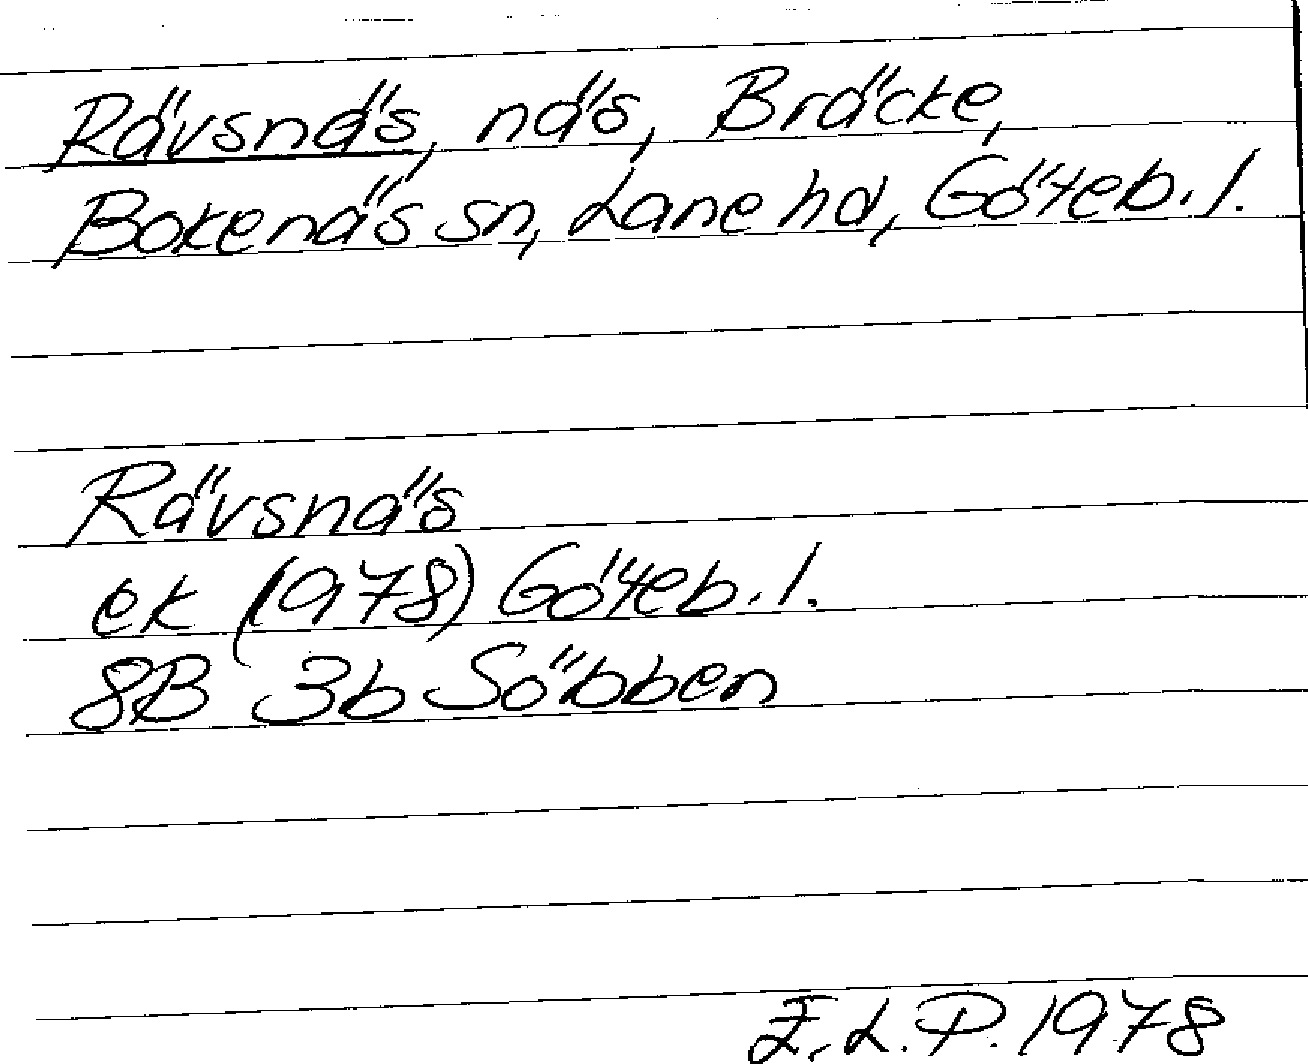 Rävsnäs, näs, Bräcke,
Bokenäs sn, Lane hd, Göteb. l.
Rävsnäs
ek (1978) Göteb. l.
8B 3b Söbben
E. L. P. 1978